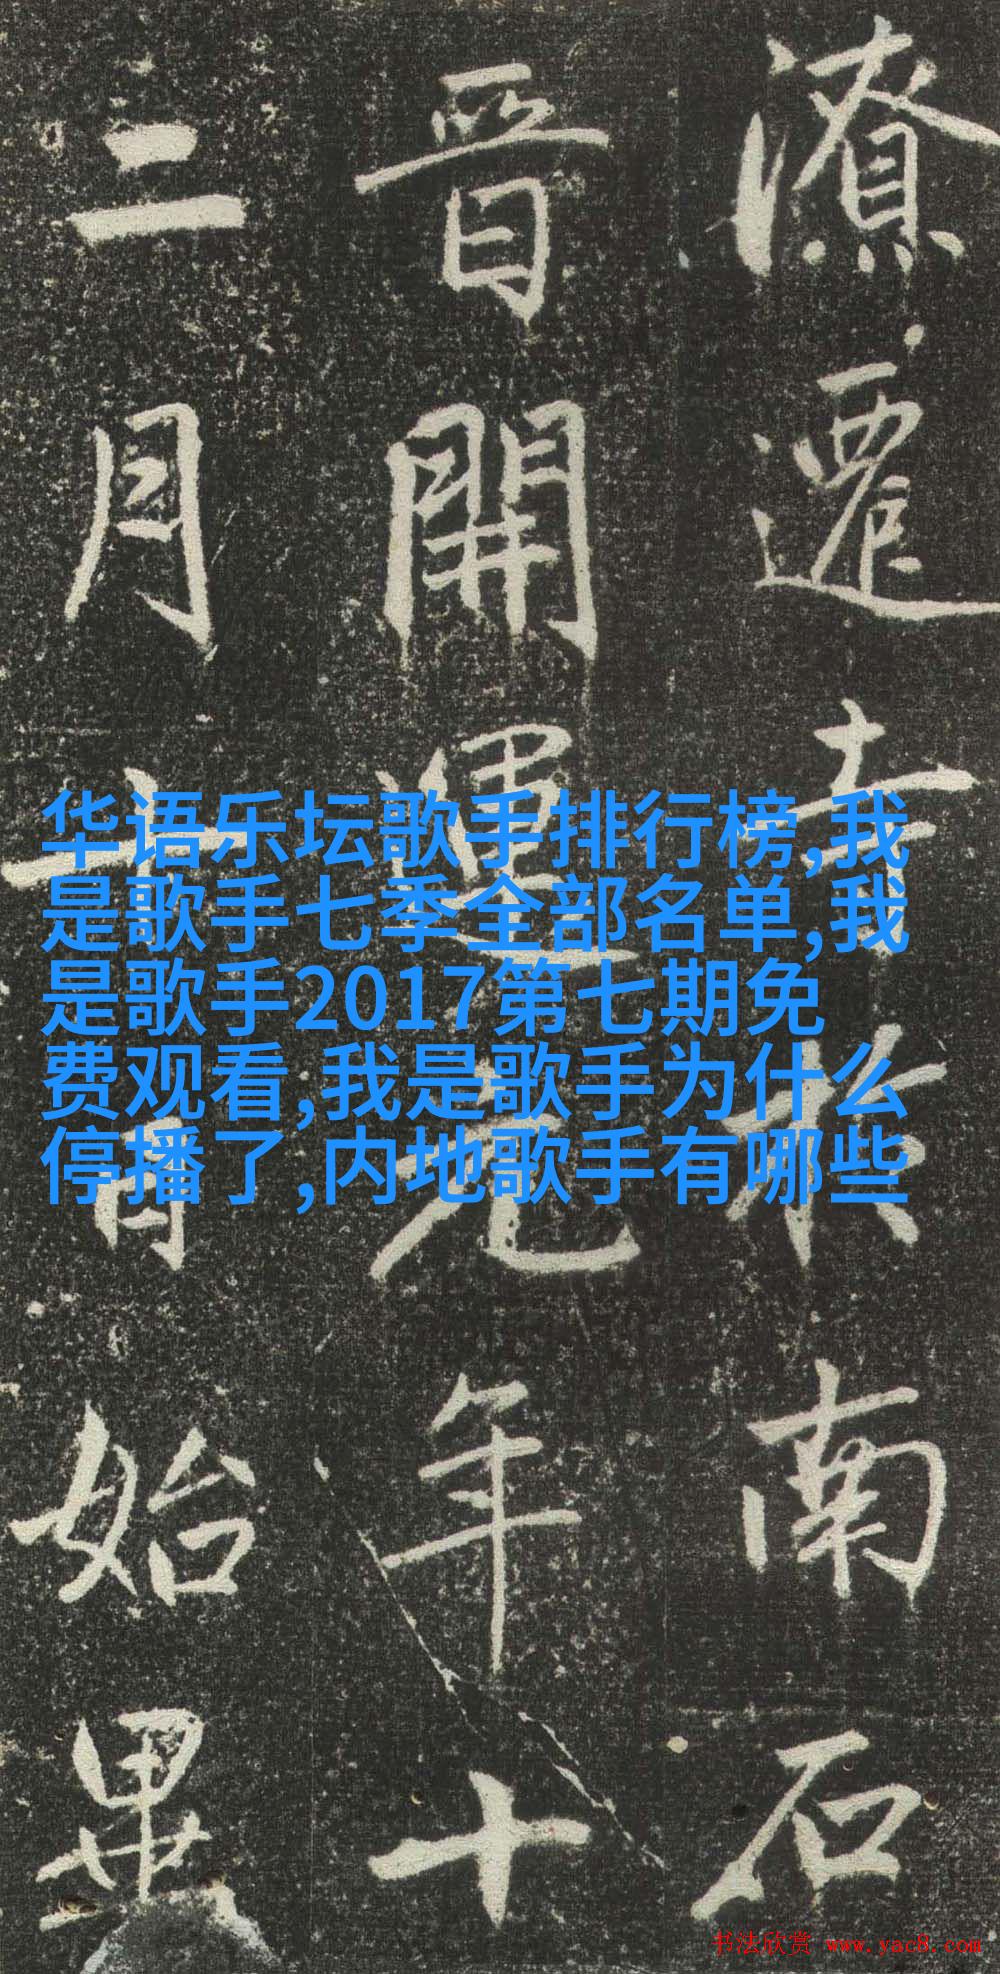 潦遷寺於南石
晉開運元年十
二月十日始畢
华语乐坛歌手排行榜,我
是歌手七季全部名单,我
是歌手2017第七期免
费观看,我是歌手为什么
停播了,内地歌手有哪些
书法欣赏 www.yac8.com